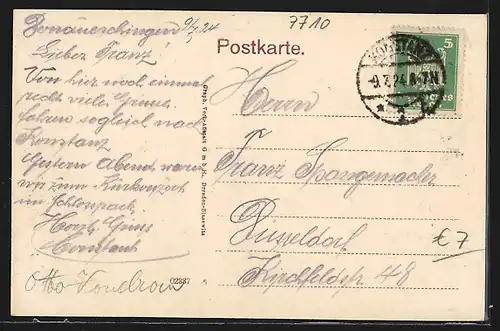 Donaueschingen 9/7.24
7710
Lieber Franz!
Von hier noch einmal
recht viele Grüsse
fahren sogleich nach
Konstanz
Gestern Abend waren
wir zum Kurkonzert
im Schlosspark
Herzl. Grüsse
Constant
Otto Vondran
02887
Graph. Verl.-Anstalt G. m. b. H., Dresden-Blasewitz
Postkarte.
KONSTANZ
9.7.24.6-7N
* 2 *
5
Herrn
Franz Spangemacher
Düsseldorf
Kirchfeldstr 48
€ 7